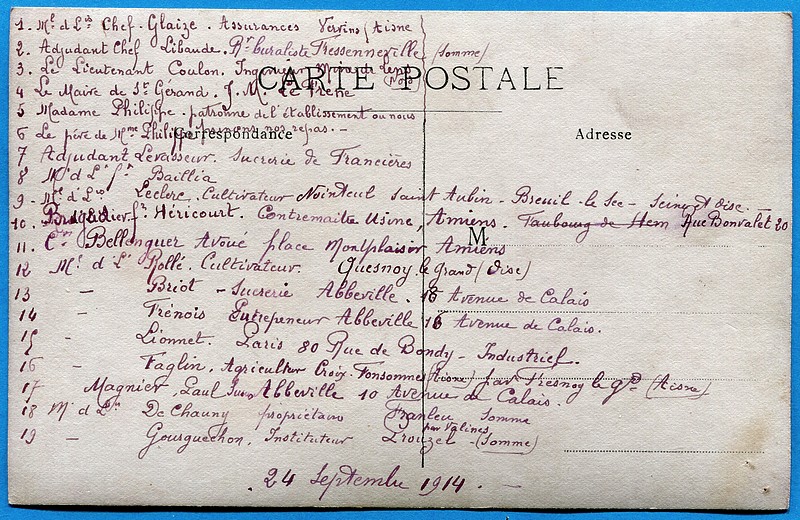 1. Ml d Lis Chef. Glaize. Assurances Vervins (Aisne
2. Adjudant Chef Libaude. Rr buraliste Fressenneville (Somme)
3. Le Lieutenant Coulon. Ingénieur Mines de Lens
Nord
CARTE POSTALE
4 Le Maire de St Gérand. J. M. Le Frene
5 Madame Philippe. patronne de l'établissement ou nous
6 Le père de Mme Philippe faisons nos repas. -
Correspondance
Adresse
7 Adjudant Levasseur. Sucrerie de Francières
8 Ml d Ls fr Baillia
9. Ml d Lis Leclerc. Cultivateur Nointeul Saint Aubin - Breuil-le Sec - Seine et Oise. -
10. Brigadier fr Héricourt. Contremaitre Usine, Amiens. Faubourg de Hem Rue Bonvalet 20
M
11. Bellenguer Avoué place Montplaisir Amiens
12 Ml d Ls Rollé. Cultivateur. Quesnoy le Grand (Oise)
13 - Briot - Sucrerie Abbeville. 16 Avenue de Calais
14 - Frénois Entrepeneur Abbeville 16 Avenue de Calais.
15 - Lionnet. Paris 80 Rue de Bondy - Industriel.
16 - Faglin, Agriculteur Croix. Fonsommes (Aisne) par Fresnoy le Gd (Aisne)
17 Magnier, Paul Abbeville 10 Avenue de Calais.
18 Ml d Ls De Chauny propriétaire Franleu Somme
par Valines
19 - Gourguechon, Instituteur Drouzel - (Somme)
24 Septembre 1914. -